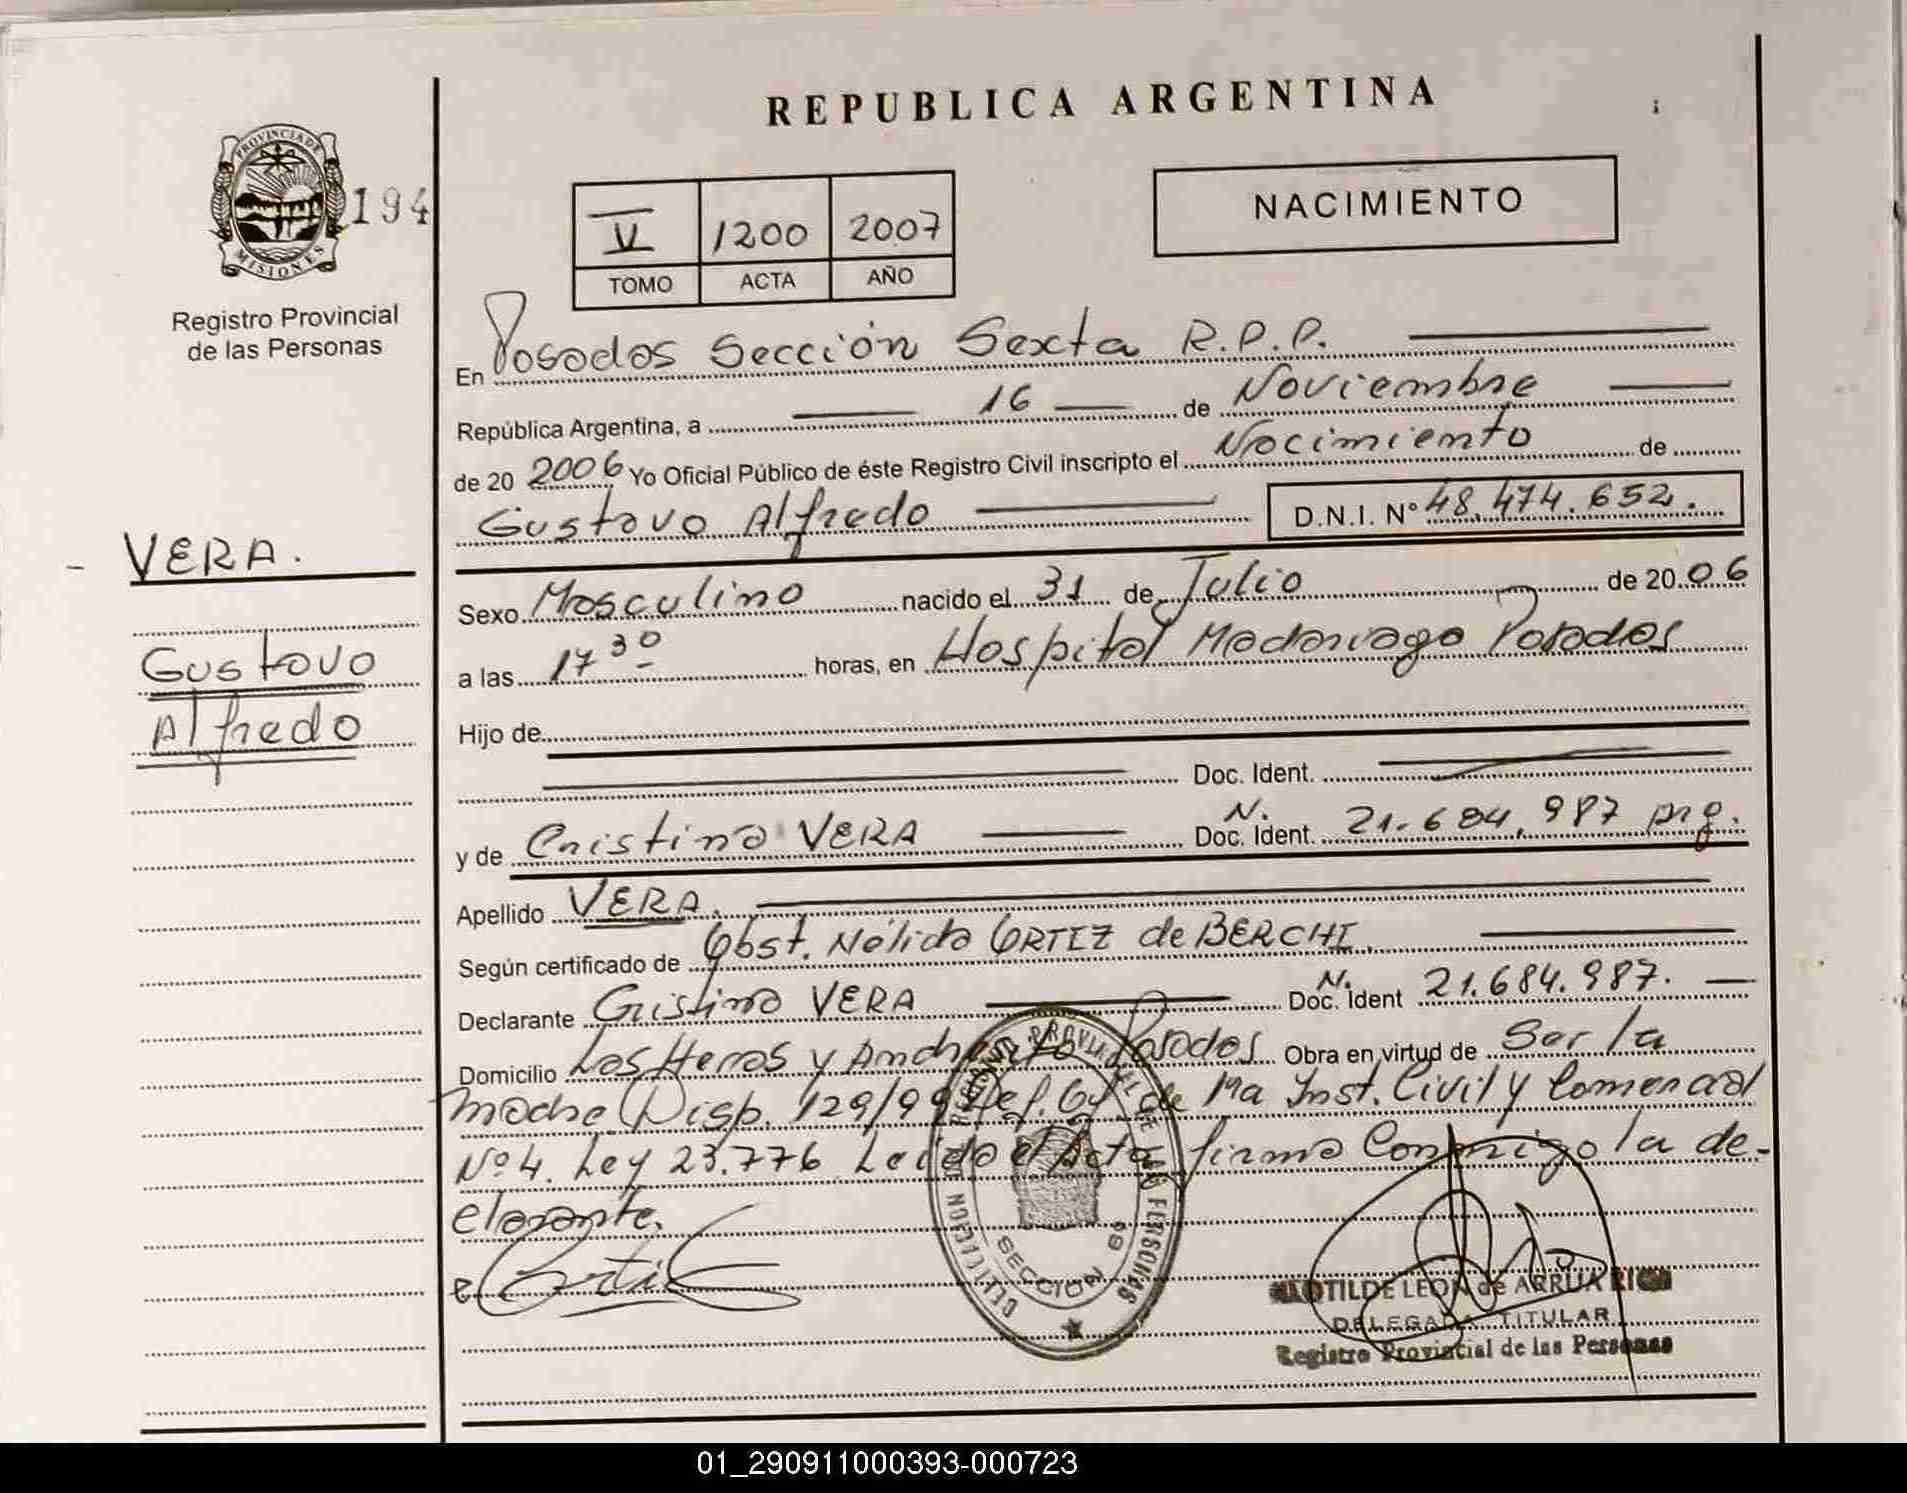 REPUBLICA ARGENTINA
PROVINCIA DE
MISIONES
194
Registro Provincial
de las Personas
V 1200 2007
TOMO ACTA AÑO
NACIMIENTO
En Posadas Sección Sexta R.P.P.
República Argentina, a 16 de Noviembre
de 20 2006 Yo Oficial Público de éste Registro Civil inscripto el Nacimiento de
Gustavo Alfredo D.N.I. Nº 48.474.652.
VERA.
Gustavo
Alfredo
Sexo Masculino nacido el 31 de Julio de 20 06
a las 17 30 horas, en Hospital Madariaga Posadas
Hijo de
Doc. Ident.
y de Cristina VERA N. Doc. Ident. 21.684.987 Arg.
Apellido VERA.
Según certificado de Obst. Nélida ORTIZ de BERCHI.
Declarante Cristina VERA N. Doc. Ident 21.684.987.
Domicilio Las Heras y Andresito Posadas Obra en virtud de Ser la
madre. Disp. 129/99 Def. Of. de 1ra Inst. Civil y Comercial
Nº 4. Ley 23.776 Leída el Acta firma Conmigo la de-
clarante.
SECCION 6ª
CLOTILDE LEON de ARRUA RIOS
DELEGADA TITULAR
Registro Provincial de las Personas
01_290911000393-000723